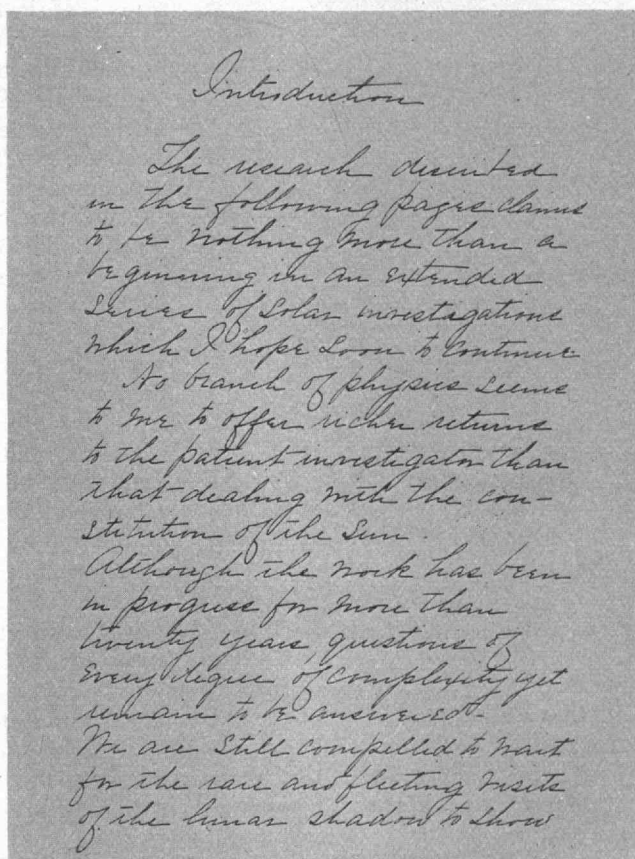 Introduction
The research described
in the following pages claims
to be nothing more than a
beginning in an extended
series of solar investigations
which I hope soon to continue.
No branch of physics seems
to me to offer richer returns
to the patient investigator than
that dealing with the con-
stitution of the sun.
Although the work has been
in progress for more than
twenty years, questions of
every degree of complexity yet
remain to be answered.
We are still compelled to wait
for the rare and fleeting visits
of the lunar shadow to show